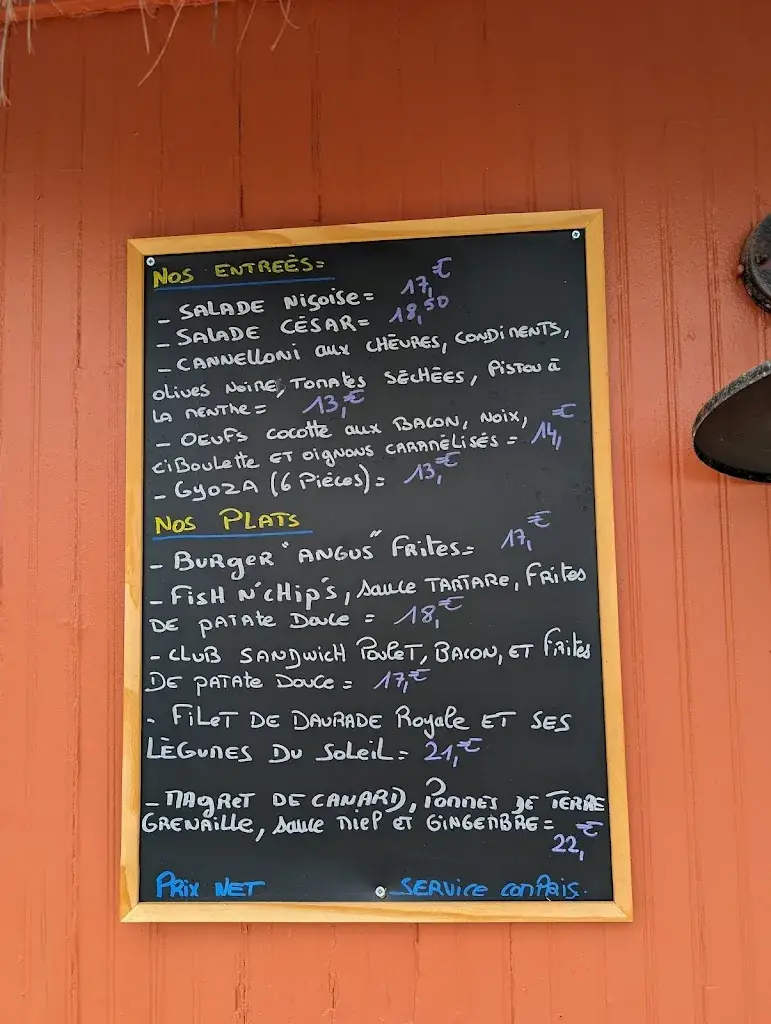 NOS ENTREÉS=
- SALADE NIÇOISE = 17,€
- SALADE CÉSAR= 18,50
- CANNELLONI aux CHÈVRES, CONDIMENTS,
OLIVES NOIRE, TOMATES SÉCHÉES, PISTOU à
LA MENTHE = 13,€
- OEUFS COCOTTE aux BACON, NOIX,
CIBOULETTE ET OIGNONS CARAMÉLISÉS = 14,€
- GYOZA (6 PIÈCES) = 13,€
NOS PLATS
- BURGER "ANGUS" FRITES= 17,€
- FISH N'CHIP'S, SAUCE TARTARE, FRITES
DE PATATE DOUCE = 18,€
- CLUB SANDWICH POULET, BACON, ET FRITES
DE PATATE DOUCE = 17,€
- FILET DE DAURADE ROYALE ET SES
LÈGUMES DU SOLEIL = 21,€
- MAGRET DE CANARD, POMMES DE TERRE
GRENAILLE, SAUCE MIEL ET GINGEMBRE =
22,€
PRIX NET SERVICE COMPRIS.